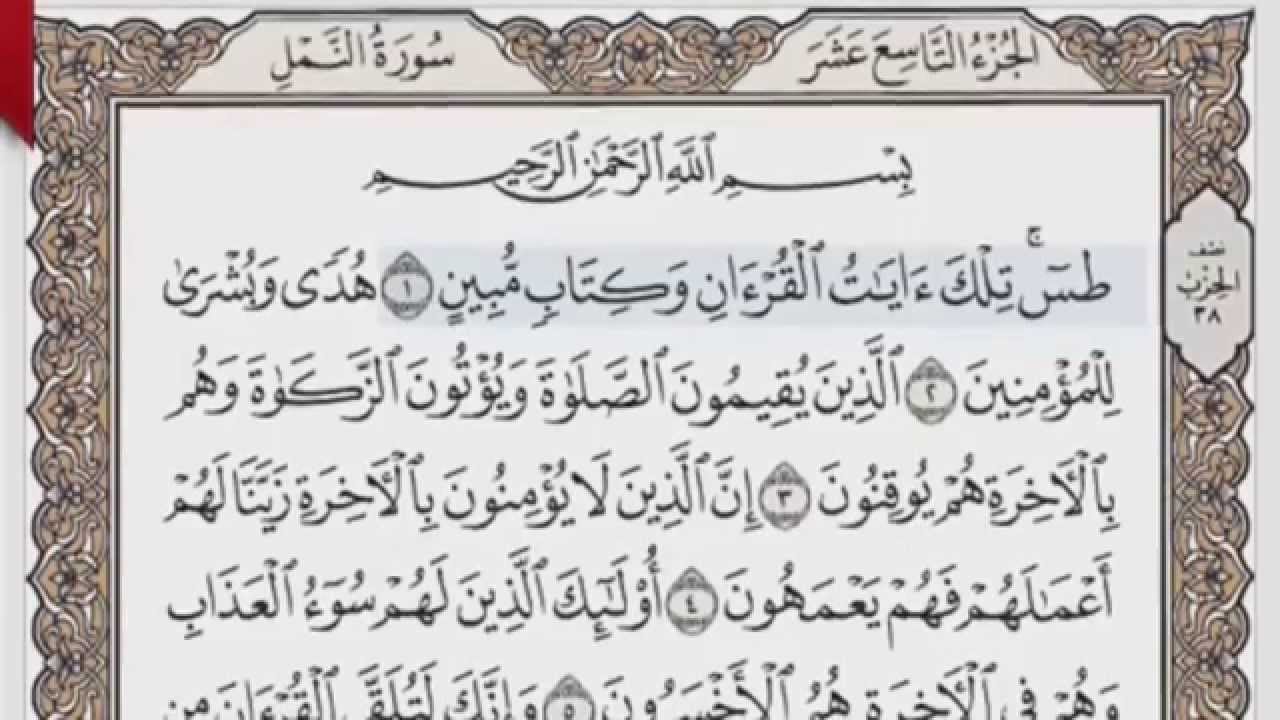 الجُزْءُ التَّاسِعَ عَشَرَ
سُورَةُ النَّمْلِ
بِسْمِ ٱللَّهِ ٱلرَّحْمَٰنِ ٱلرَّحِيمِ
طسٓۚ تِلْكَ ءَايَٰتُ ٱلْقُرْءَانِ وَكِتَابٍ مُّبِينٍ ١ هُدًى وَبُشْرَىٰ
لِلْمُؤْمِنِينَ ٢ ٱلَّذِينَ يُقِيمُونَ ٱلصَّلَوٰةَ وَيُؤْتُونَ ٱلزَّكَوٰةَ وَهُم
بِٱلْأَخِرَةِ هُمْ يُوقِنُونَ ٣ إِنَّ ٱلَّذِينَ لَا يُؤْمِنُونَ بِٱلْأَخِرَةِ زَيَّنَّا لَهُمْ
أَعْمَٰلَهُمْ فَهُمْ يَعْمَهُونَ ٤ أُوْلَٰٓئِكَ ٱلَّذِينَ لَهُمْ سُوٓءُ ٱلْعَذَابِ
وَهُمْ فِى ٱلْأَخِرَةِ هُمُ ٱلْأَخْسَرُونَ ٥ وَإِنَّكَ لَتُلَقَّى ٱلْقُرْءَانَ مِن
نصف
الحِزْب
٣٨